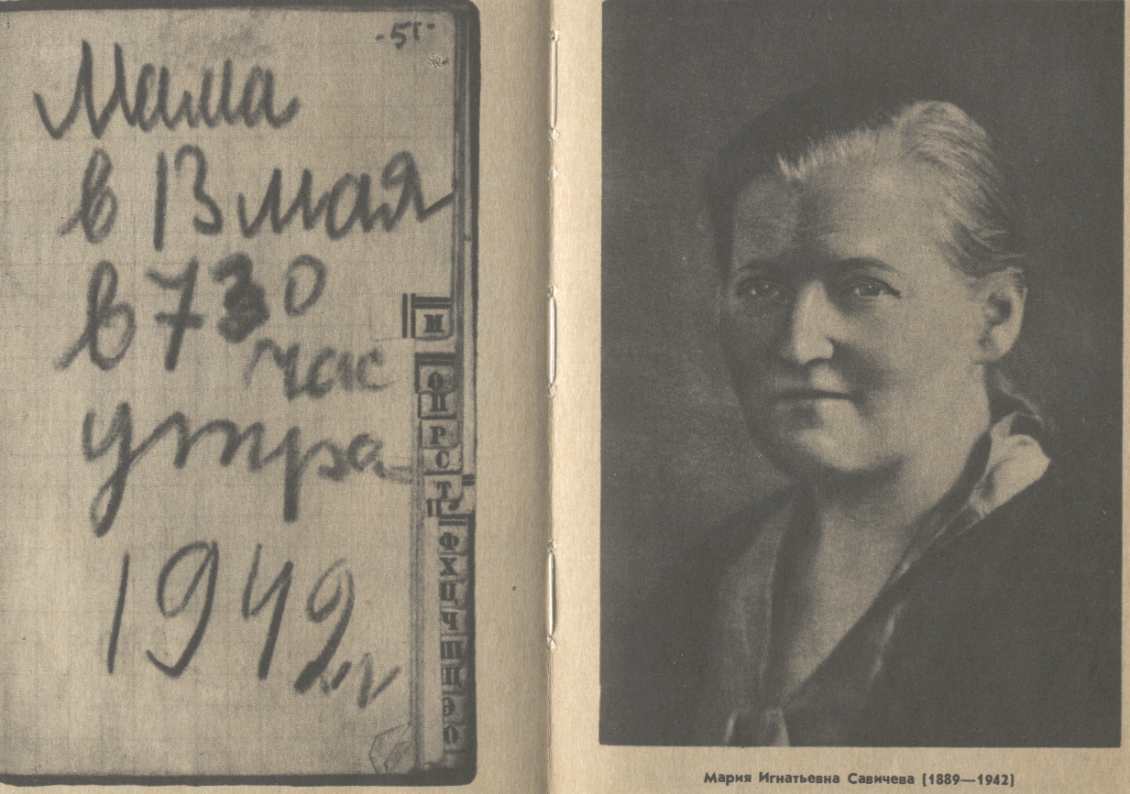 -51-
Мама
в 13 мая
в 730
час
утра
1942 г
М
О
П
Р
С
Т
Ф
Х
Ц
Ч
Ш
Щ
Э
Мария Игнатьевна Савичева (1889—1942)